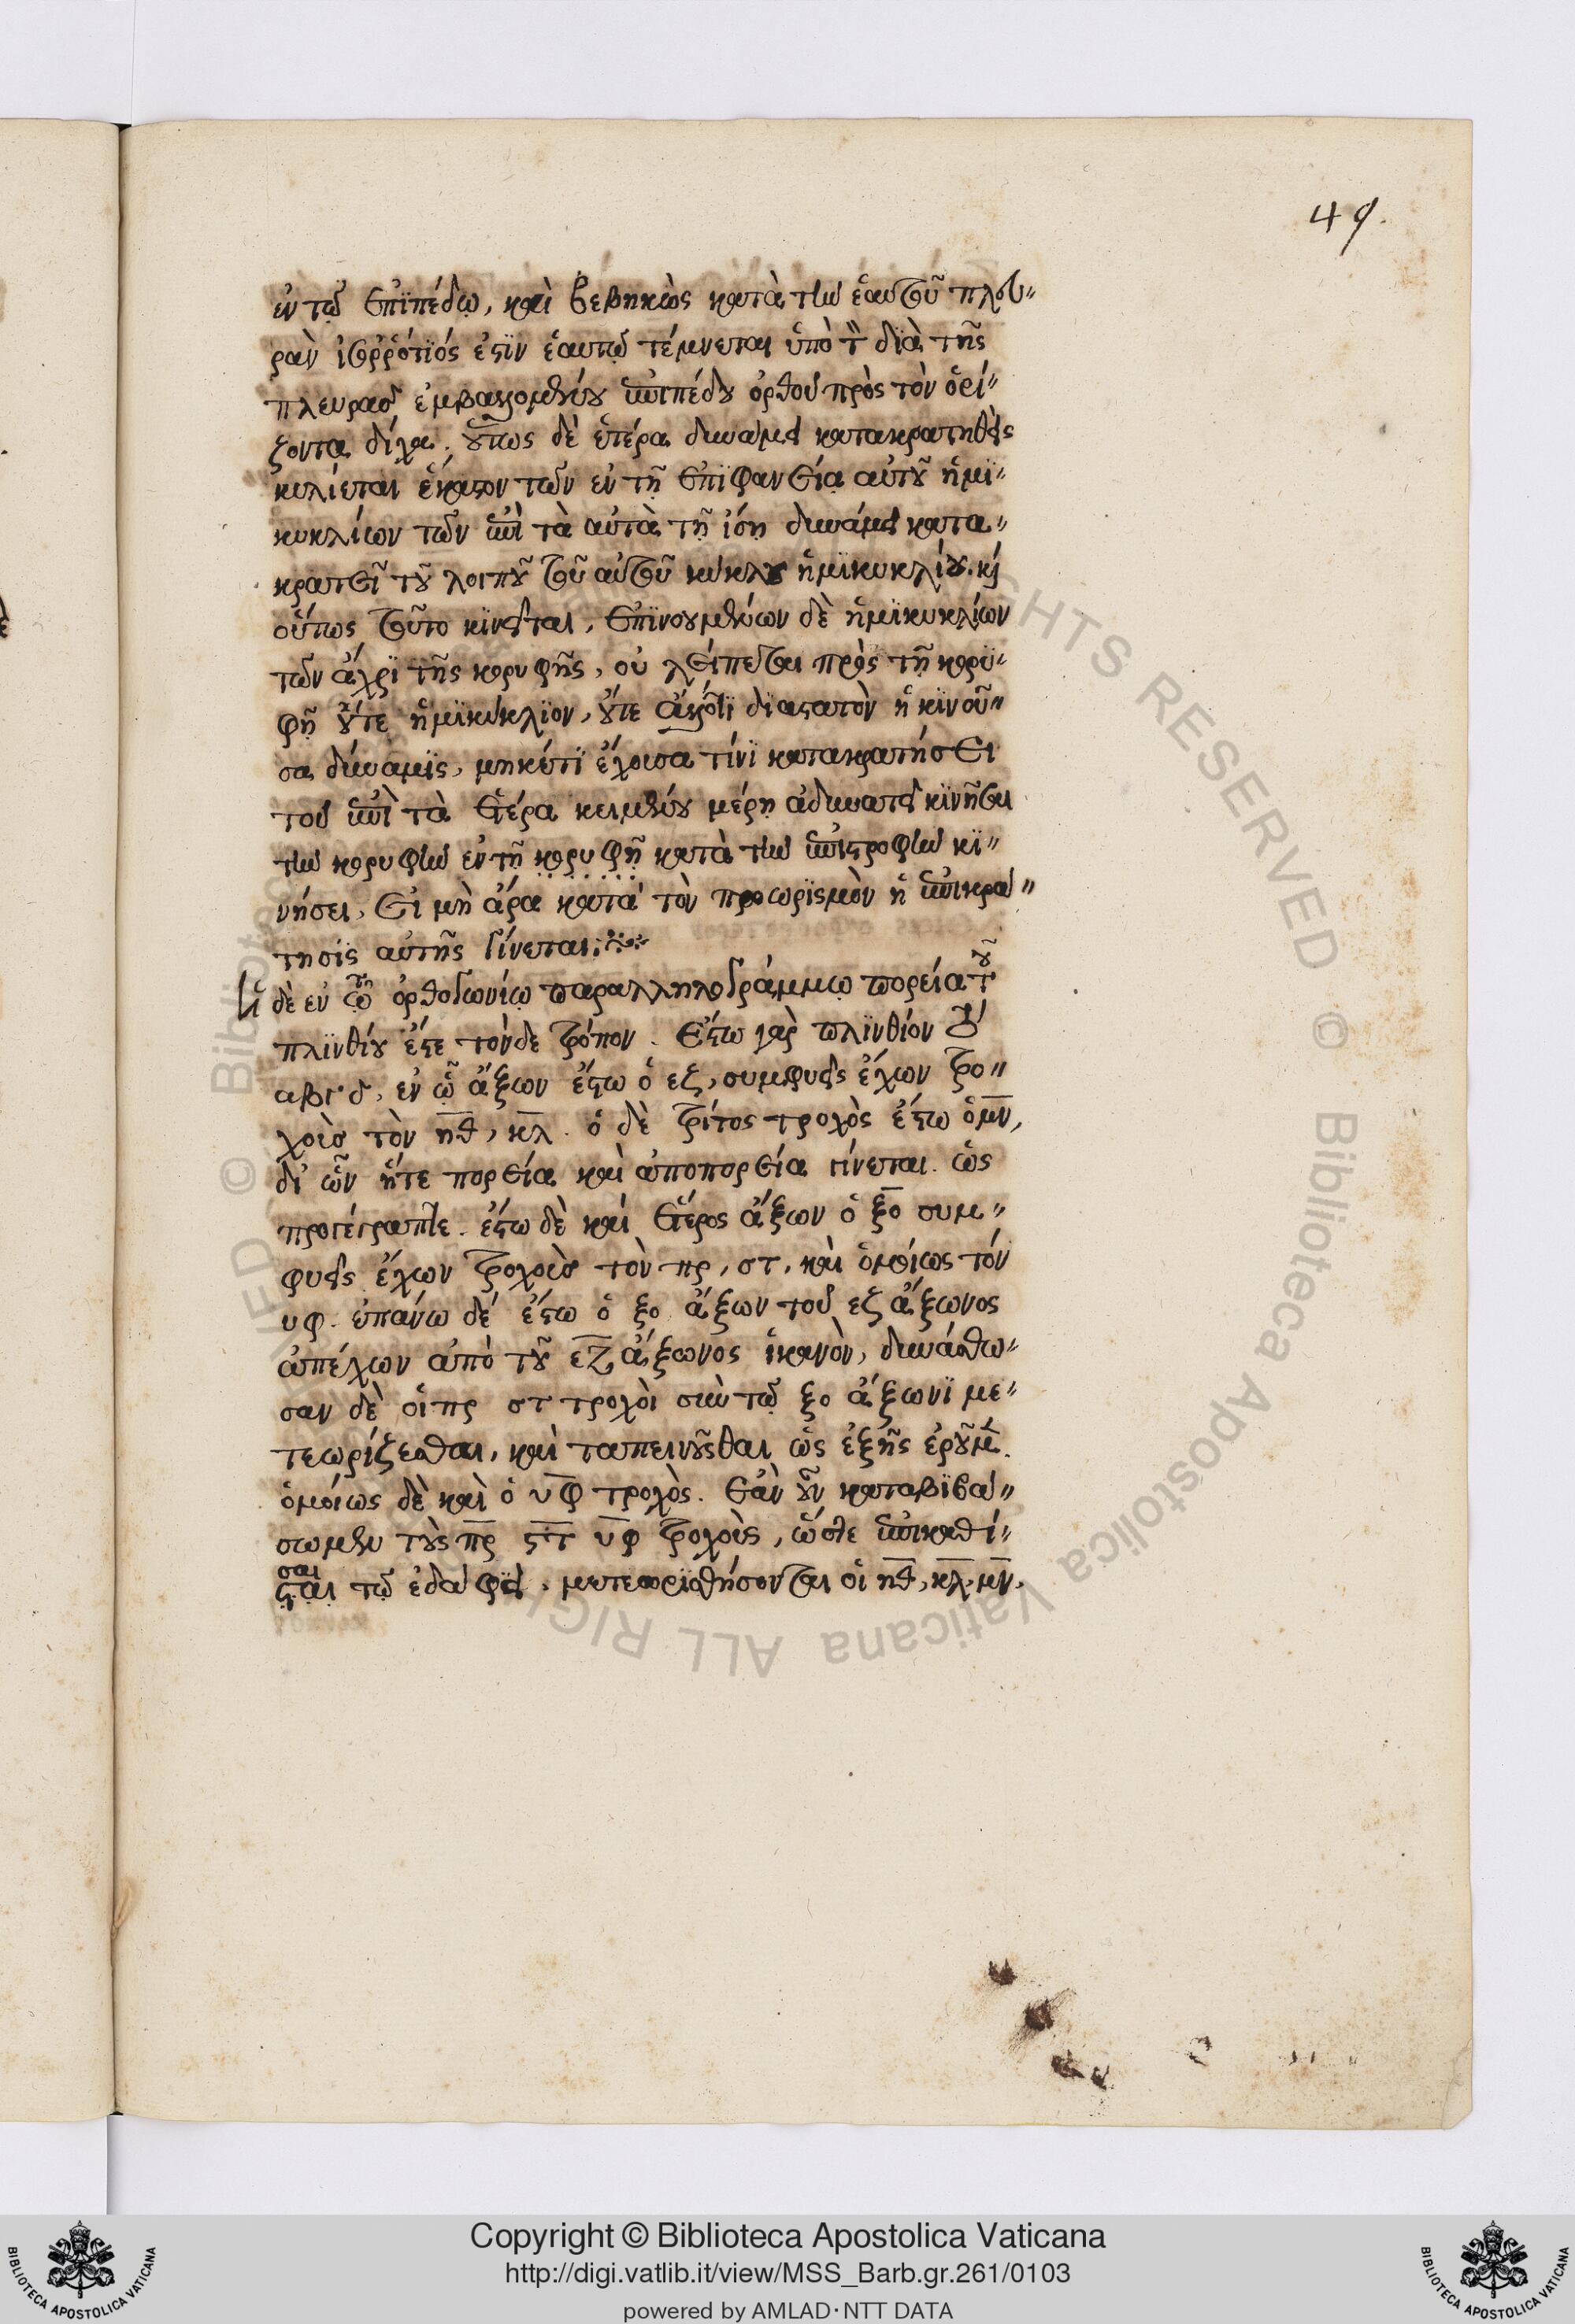 49.
ἐν τῷ ἐπϊπέδῳ, καὶ βεβηκὼς κατὰ τὴν ἑαυτοῦ πλευ"
ρὰν ἰσορρότϊός ἐστϊν ἑαυτῷ τέμνεται ὑπὸ τ̀ῦ διὰ τῆς
πλευρᾶσ ἐμβαλλομένου ἐπιπέδου ὀρθοῦ πρὸς τὸν ὁρί"
ζοντα δίχα, οὕτως δὲ ἑτέρα δυνάμει κατακρατηθεὶς
κυλίεται ἕκαστον τῶν ἐν τῇ ἐπϊφανείᾳ αὐτοῦ ἡμϊ"
κυκλίων τῶν ἐπὶ τὰ αὐτὰ τῇ ἴσῃ δυνάμει κατα"
κρατεῖ τοῦ λοιποῦ τοῦ αὐτοῦ κύκλου ἡμϊκυκλίου. κὶ
οὕτως τοῦτο κϊνεῖται, ἐπϊνοουμένων δὲ ἡμϊκυκλίων
τῶν ἄχρϊ τῆς κορυφῆς, οὐ λείπεται πρὸς τῇ κορϋ"
φῇ οὔτε ἡμϊκύκλϊον, οὔτε διαστατὸν ἡ κϊνοῦ"
σα δύναμϊς, μηκέτϊ ἔχουσα τίνϊ κατακρατήσει
τοῦ ἐπὶ τὰ ἕτερα κειμένου μέρη ἀδυνατεῖ κϊνῆσαι
τὴν κορυφὴν ἐν τῇ κορυφῇ κατὰ τὴν ἐπιστροφὴν κϊ"
νήσει, εἰ μὴ ἄρα κατὰ τὸν προωρϊσμὸν ἡ ἐπικρά"
τησϊς αὐτῆς γίνεται:
ἡ δὲ ἐν τῷ ὀρθογωνίῳ παραλληλογράμμῳ πορεία τοῦ
πλϊνθίου ἔστε τόνδε τρόπον. ἔστω γὰρ πλϊνθίον τὸ
αβγδ, ἐν ᾧ ἄξων ἔστω ὁ εζ, συμφυεῖς ἔχων τρο"
χοὺσ τὸν ηθ, κλ. ὁ δὲ τρίτος τροχὸς ἔστω ὁ μν,
δι' ὧν ἥτε πορεία καὶ ἀποπορεία γίνεται. ὡς
προγέγραπτε. ἔστω δὲ καὶ ἕτερος ἄξων ὁ ξο συμ"
φυεῖς ἔχων τροχοὺσ τὸν πρ, στ, καὶ ὁμοίως τόν
υφ. ἐπάνω δέ ἔστω ὁ ξο ἄξων τοῦ εζ ἄξωνος
ἀπέχων ἀπὸ τοῦ εζ ἄξωνος ἱκανὸν, δυνάσθω"
σαν δὲ οἱ πρ στ τροχοὶ σὺν τῷ ξο ἄξωνϊ με"
τεωρίζεσθαι, καὶ ταπεινοῦσθαι ὡς ἑξῆς ἐροῦμεν.
ὁμοίως δὲ καὶ ὁ υφ τροχὸς. ἐὰν οὖν καταβϊβά"
σωμεν τοὺς πρ στ υφ τροχοὺς, ὥστε ἐπικαθί"
σαι
σται τῷ ἐδάφϊει, μετεωρϊσθήσονται οἱ ηθ, κλ. μν.
Copyright © Biblioteca Apostolica Vaticana
http://digi.vatlib.it/view/MSS_Barb.gr.261/0103
powered by AMLAD·NTT DATA